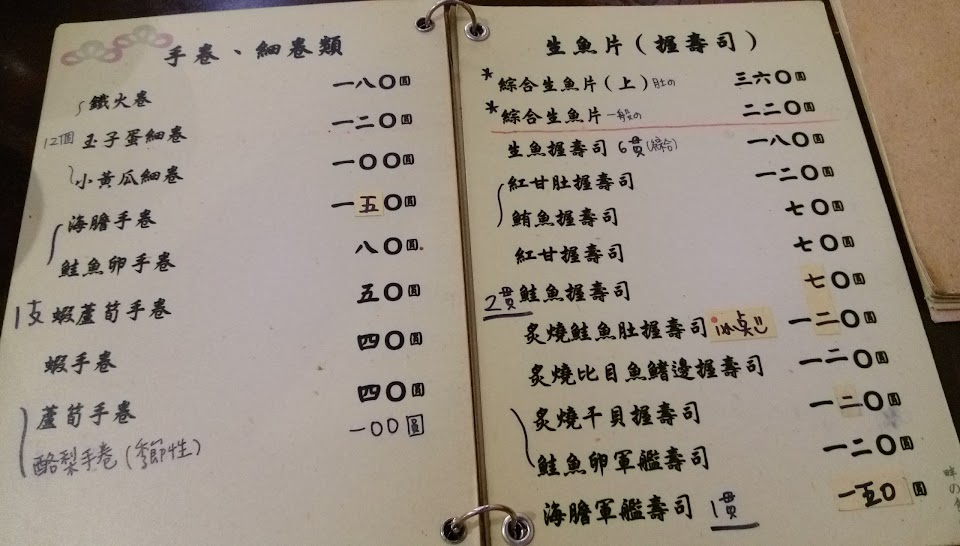 手卷、細卷類
鐵火卷 一八〇圓
12個 玉子蛋細卷 一二〇圓
小黃瓜細卷 一〇〇圓
海膽手卷 一五〇圓
鮭魚卵手卷 八〇圓
1支 蝦蘆筍手卷 五〇圓
蝦手卷 四〇圓
蘆筍手卷 四〇圓
酪梨手卷(季節性) 一〇〇圓
生魚片(握壽司)
*綜合生魚片(上)肚の 三六〇圓
*綜合生魚片 一般の 二二〇圓
生魚握壽司 6貫(綜合) 一八〇圓
紅甘肚握壽司 一二〇圓
鮪魚握壽司 七〇圓
紅甘握壽司 七〇圓
2貫 鮭魚握壽司 七〇圓
炙燒鮭魚肚握壽司 一二〇圓
炙燒比目魚鰭邊握壽司 一二〇圓
炙燒干貝握壽司 一二〇圓
鮭魚卵軍艦壽司 一二〇圓
海膽軍艦壽司 1貫 一五〇圓